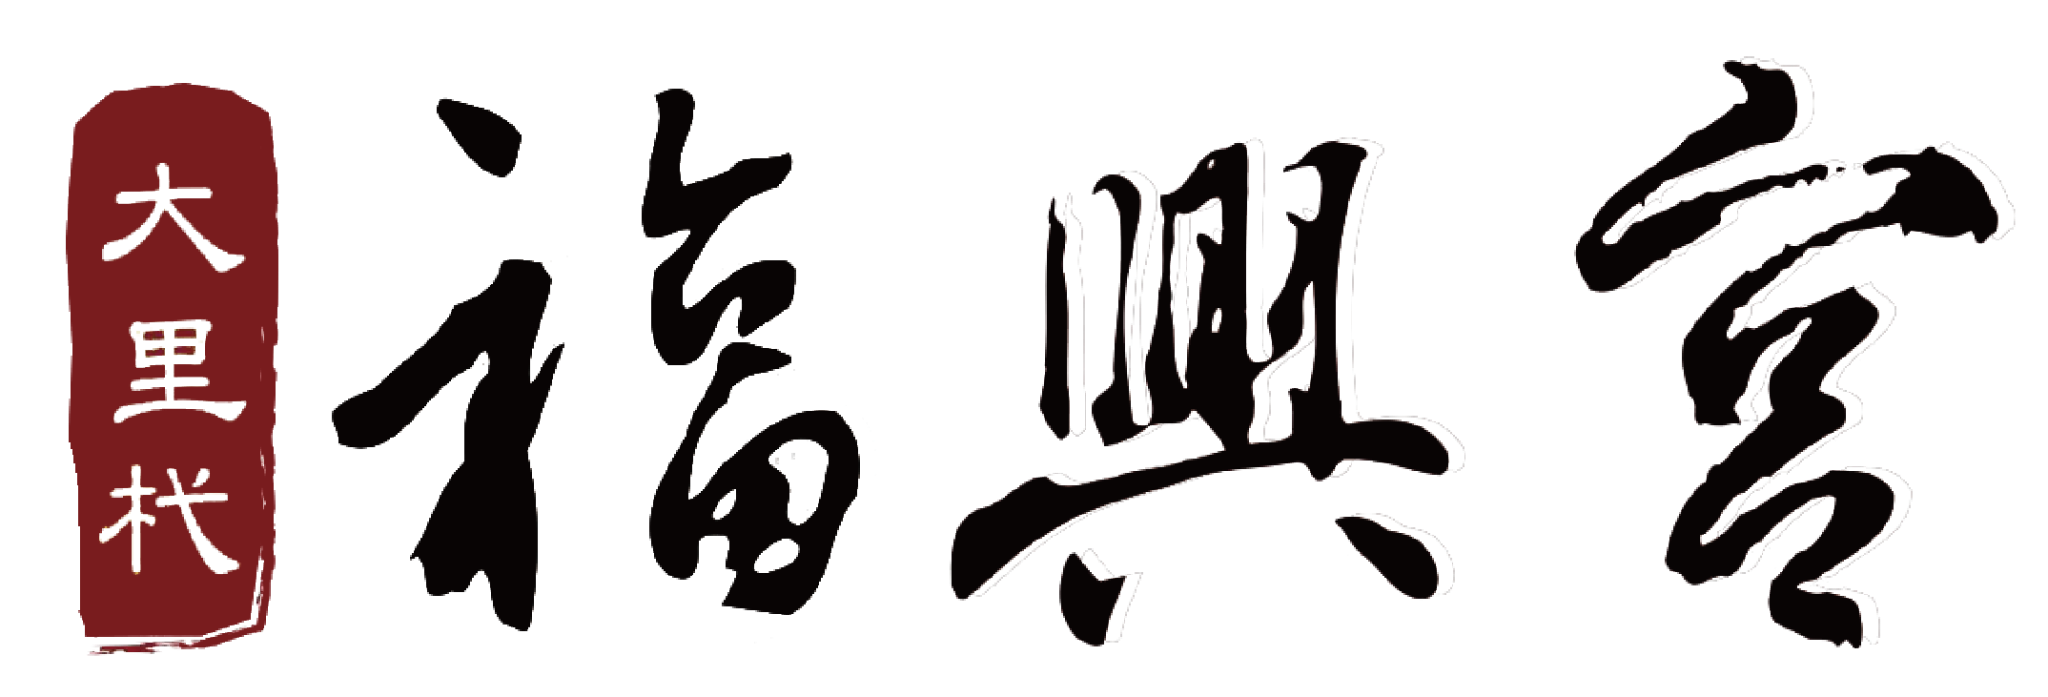 大里杙
福興宮